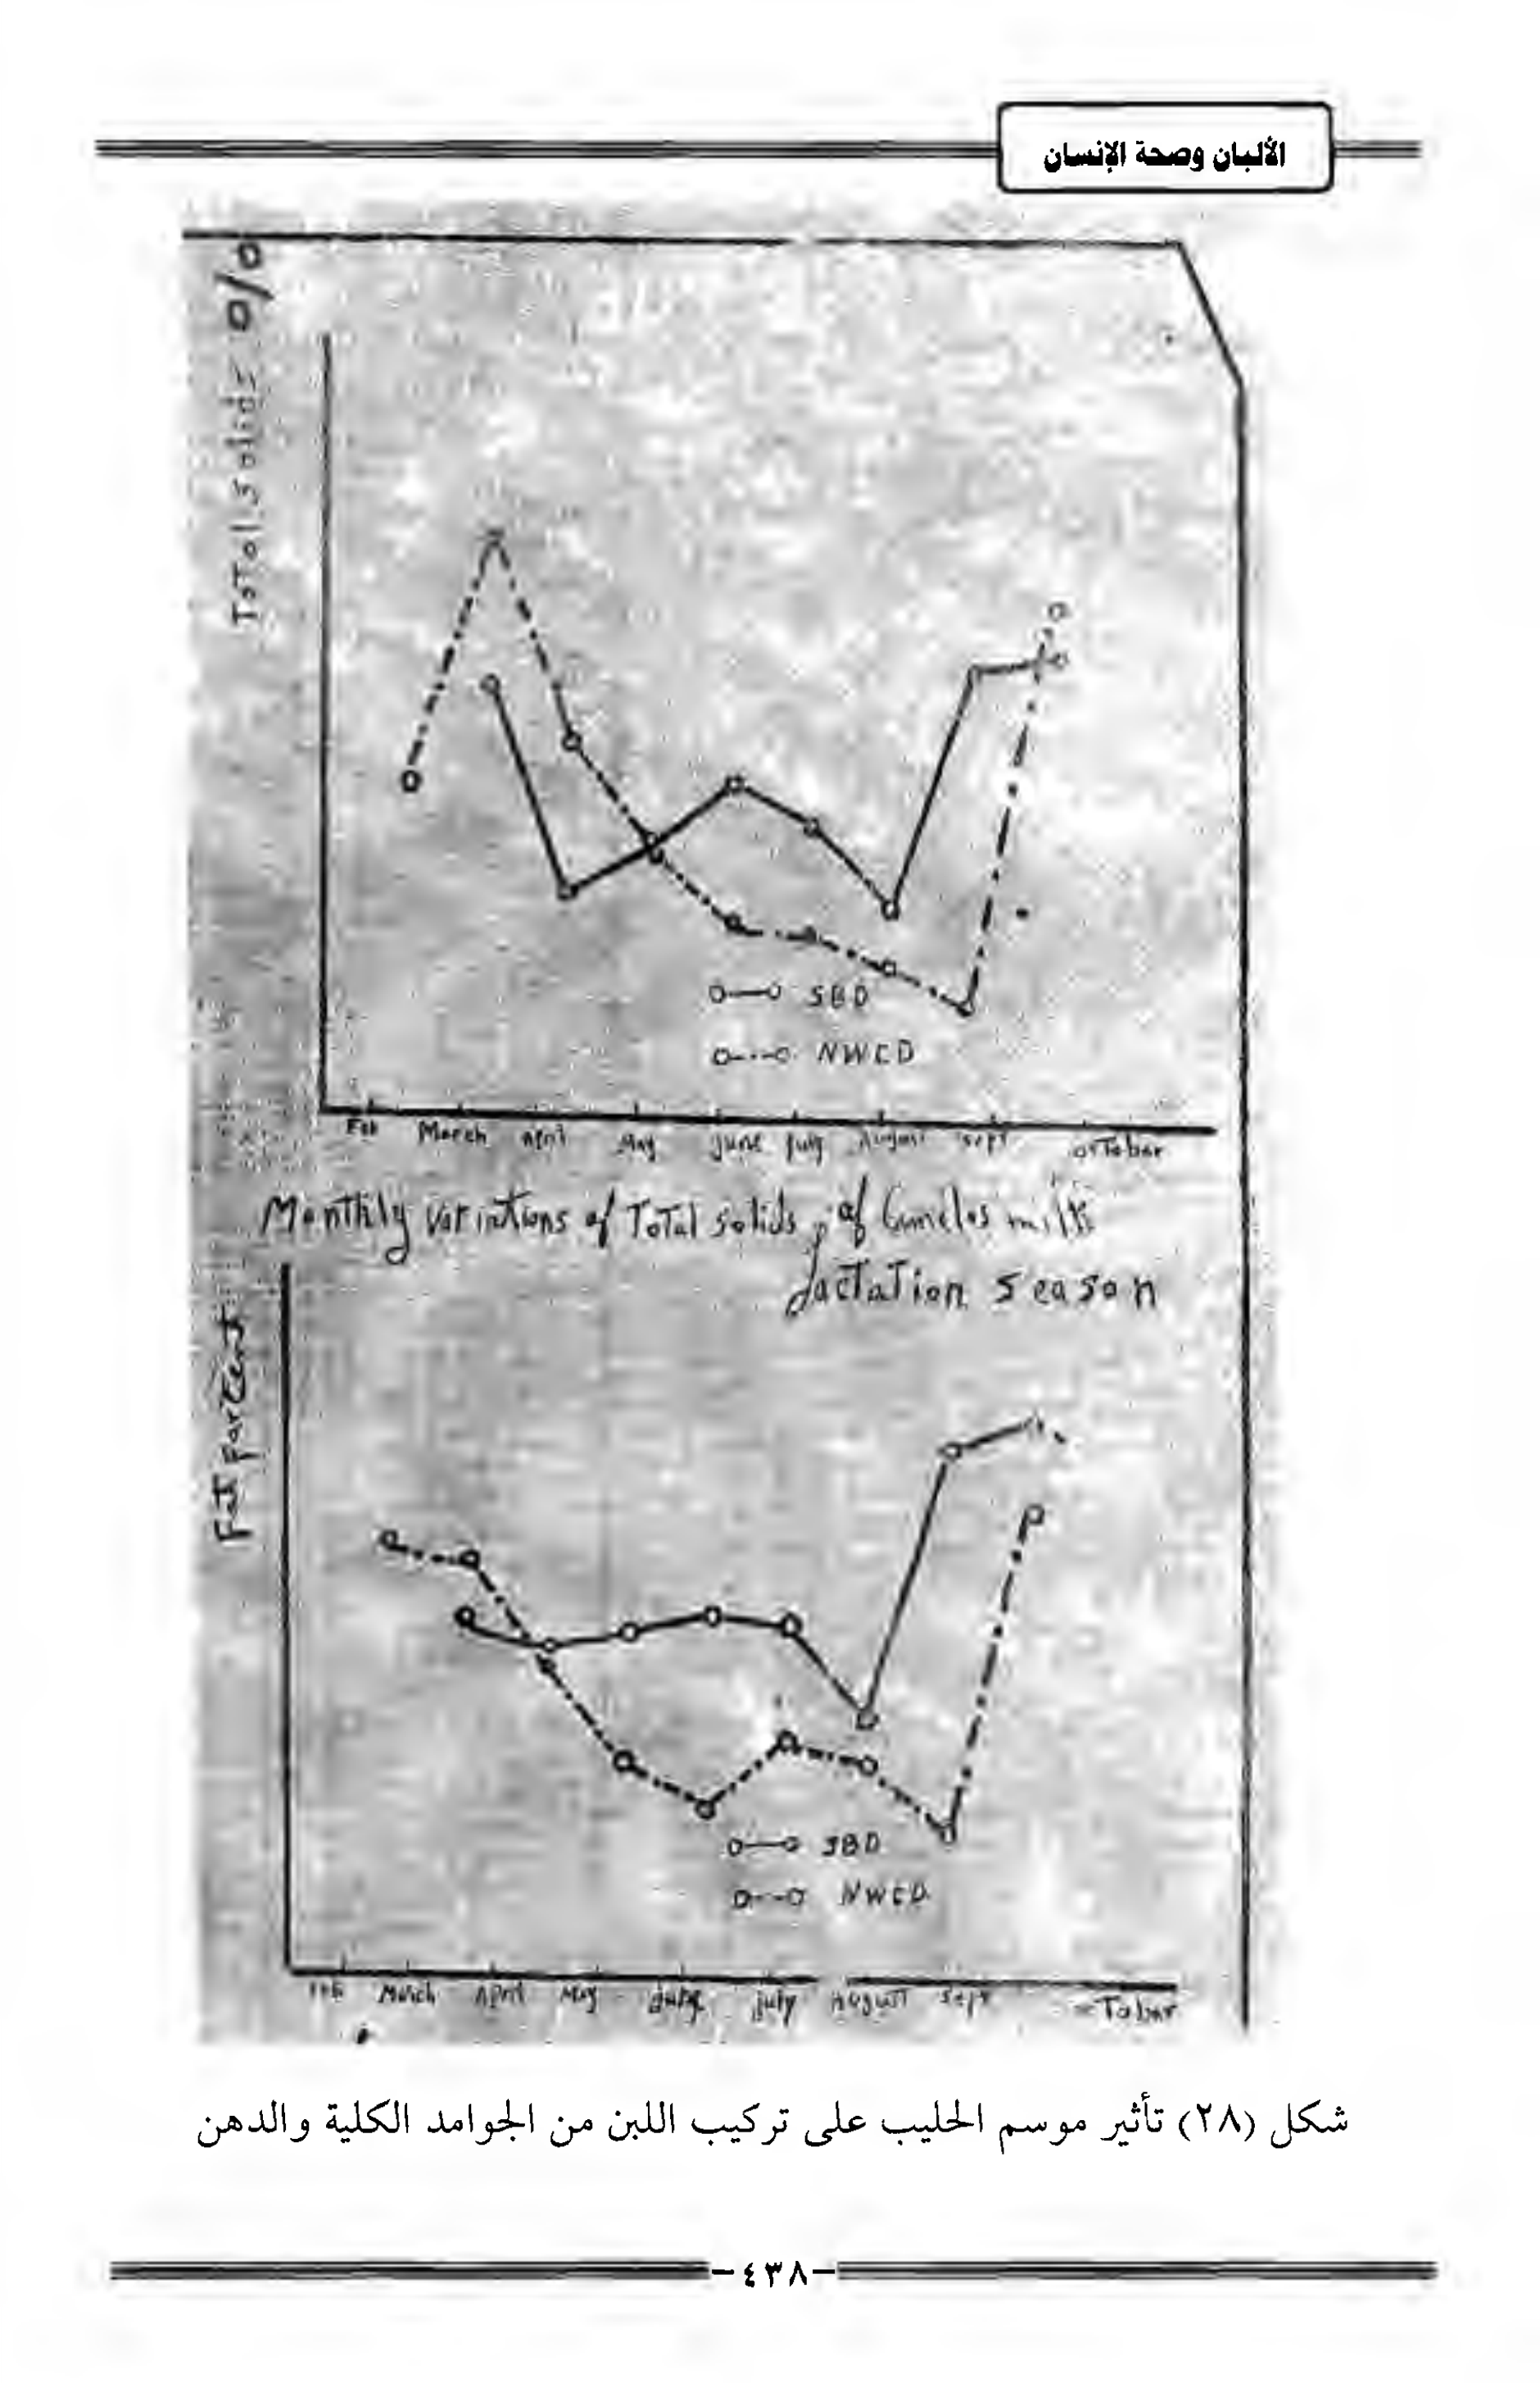 الألبان وصحة الإنسان
Total solids %
SBD
NWCD
Feb March April May June July August Sept octobar
Monthly variations of Total solids, of Cameles milk
Lactation season
Fat parcent
SBD
NWCD
Feb March April May July August Sept
شكل (٢٨) تأثير موسم الحليب على تركيب اللبن من الجوامد الكلية والدهن
-٤٣٨-